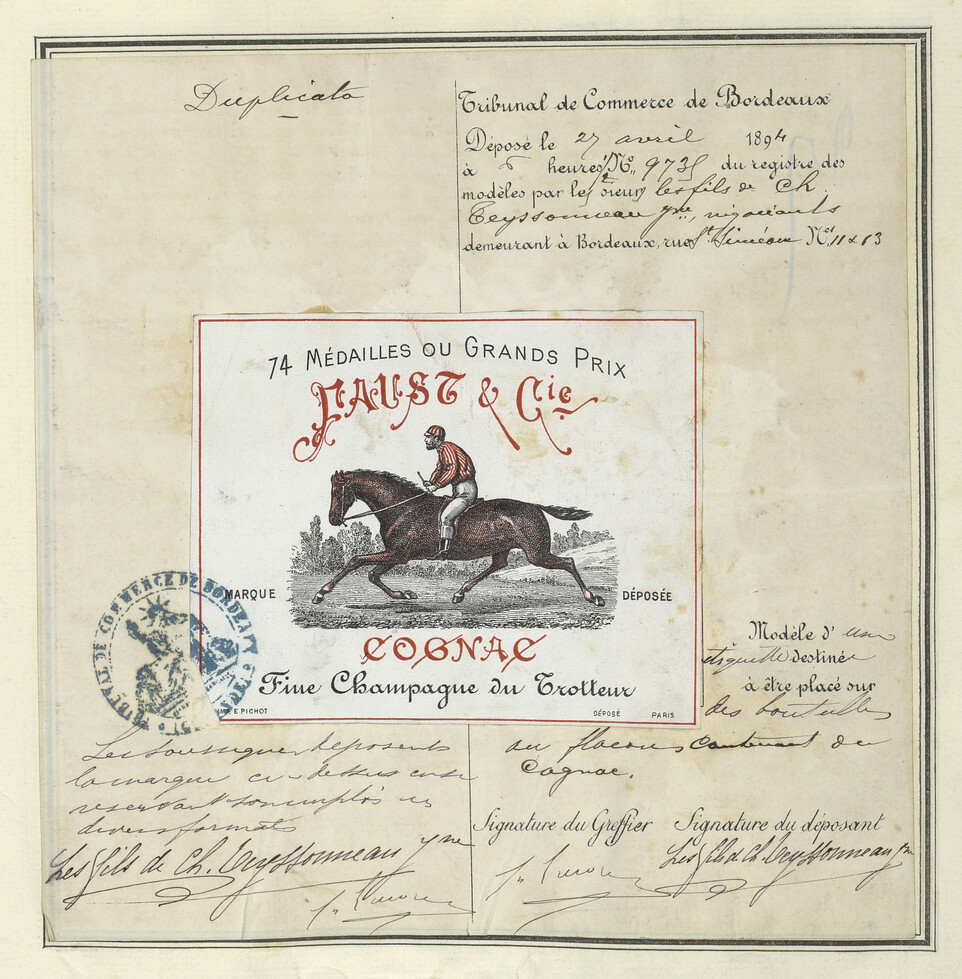 Duplicata
Tribunal de Commerce de Bordeaux
Déposé le 27 avril 1894
à heures Nº 9735 du registre des
modèles par les sieurs les fils de Ch.
Teyssonneau jne, négociants
demeurant à Bordeaux, rue St Siméon Nos 11 & 13
74 MÉDAILLES OU GRANDS PRIX
FAUST & Cie
MARQUE DÉPOSÉE
COGNAC
Fine Champagne du Trotteur
IMP. E. PICHOT DÉPOSÉ PARIS
TRIBUNAL DE COMMERCE DE BORDEAUX
Modèle d'une
étiquette destinée
à être placé sur
des bouteilles
ou flacons contenant du
Cognac.
Les soussignés déposent
la marque ci-dessus en se
réservant son emploi en
divers formats
Les fils de Ch. Teyssonneau jne
Signature du Greffier Signature du déposant
Les fils de Ch. Teyssonneau jne